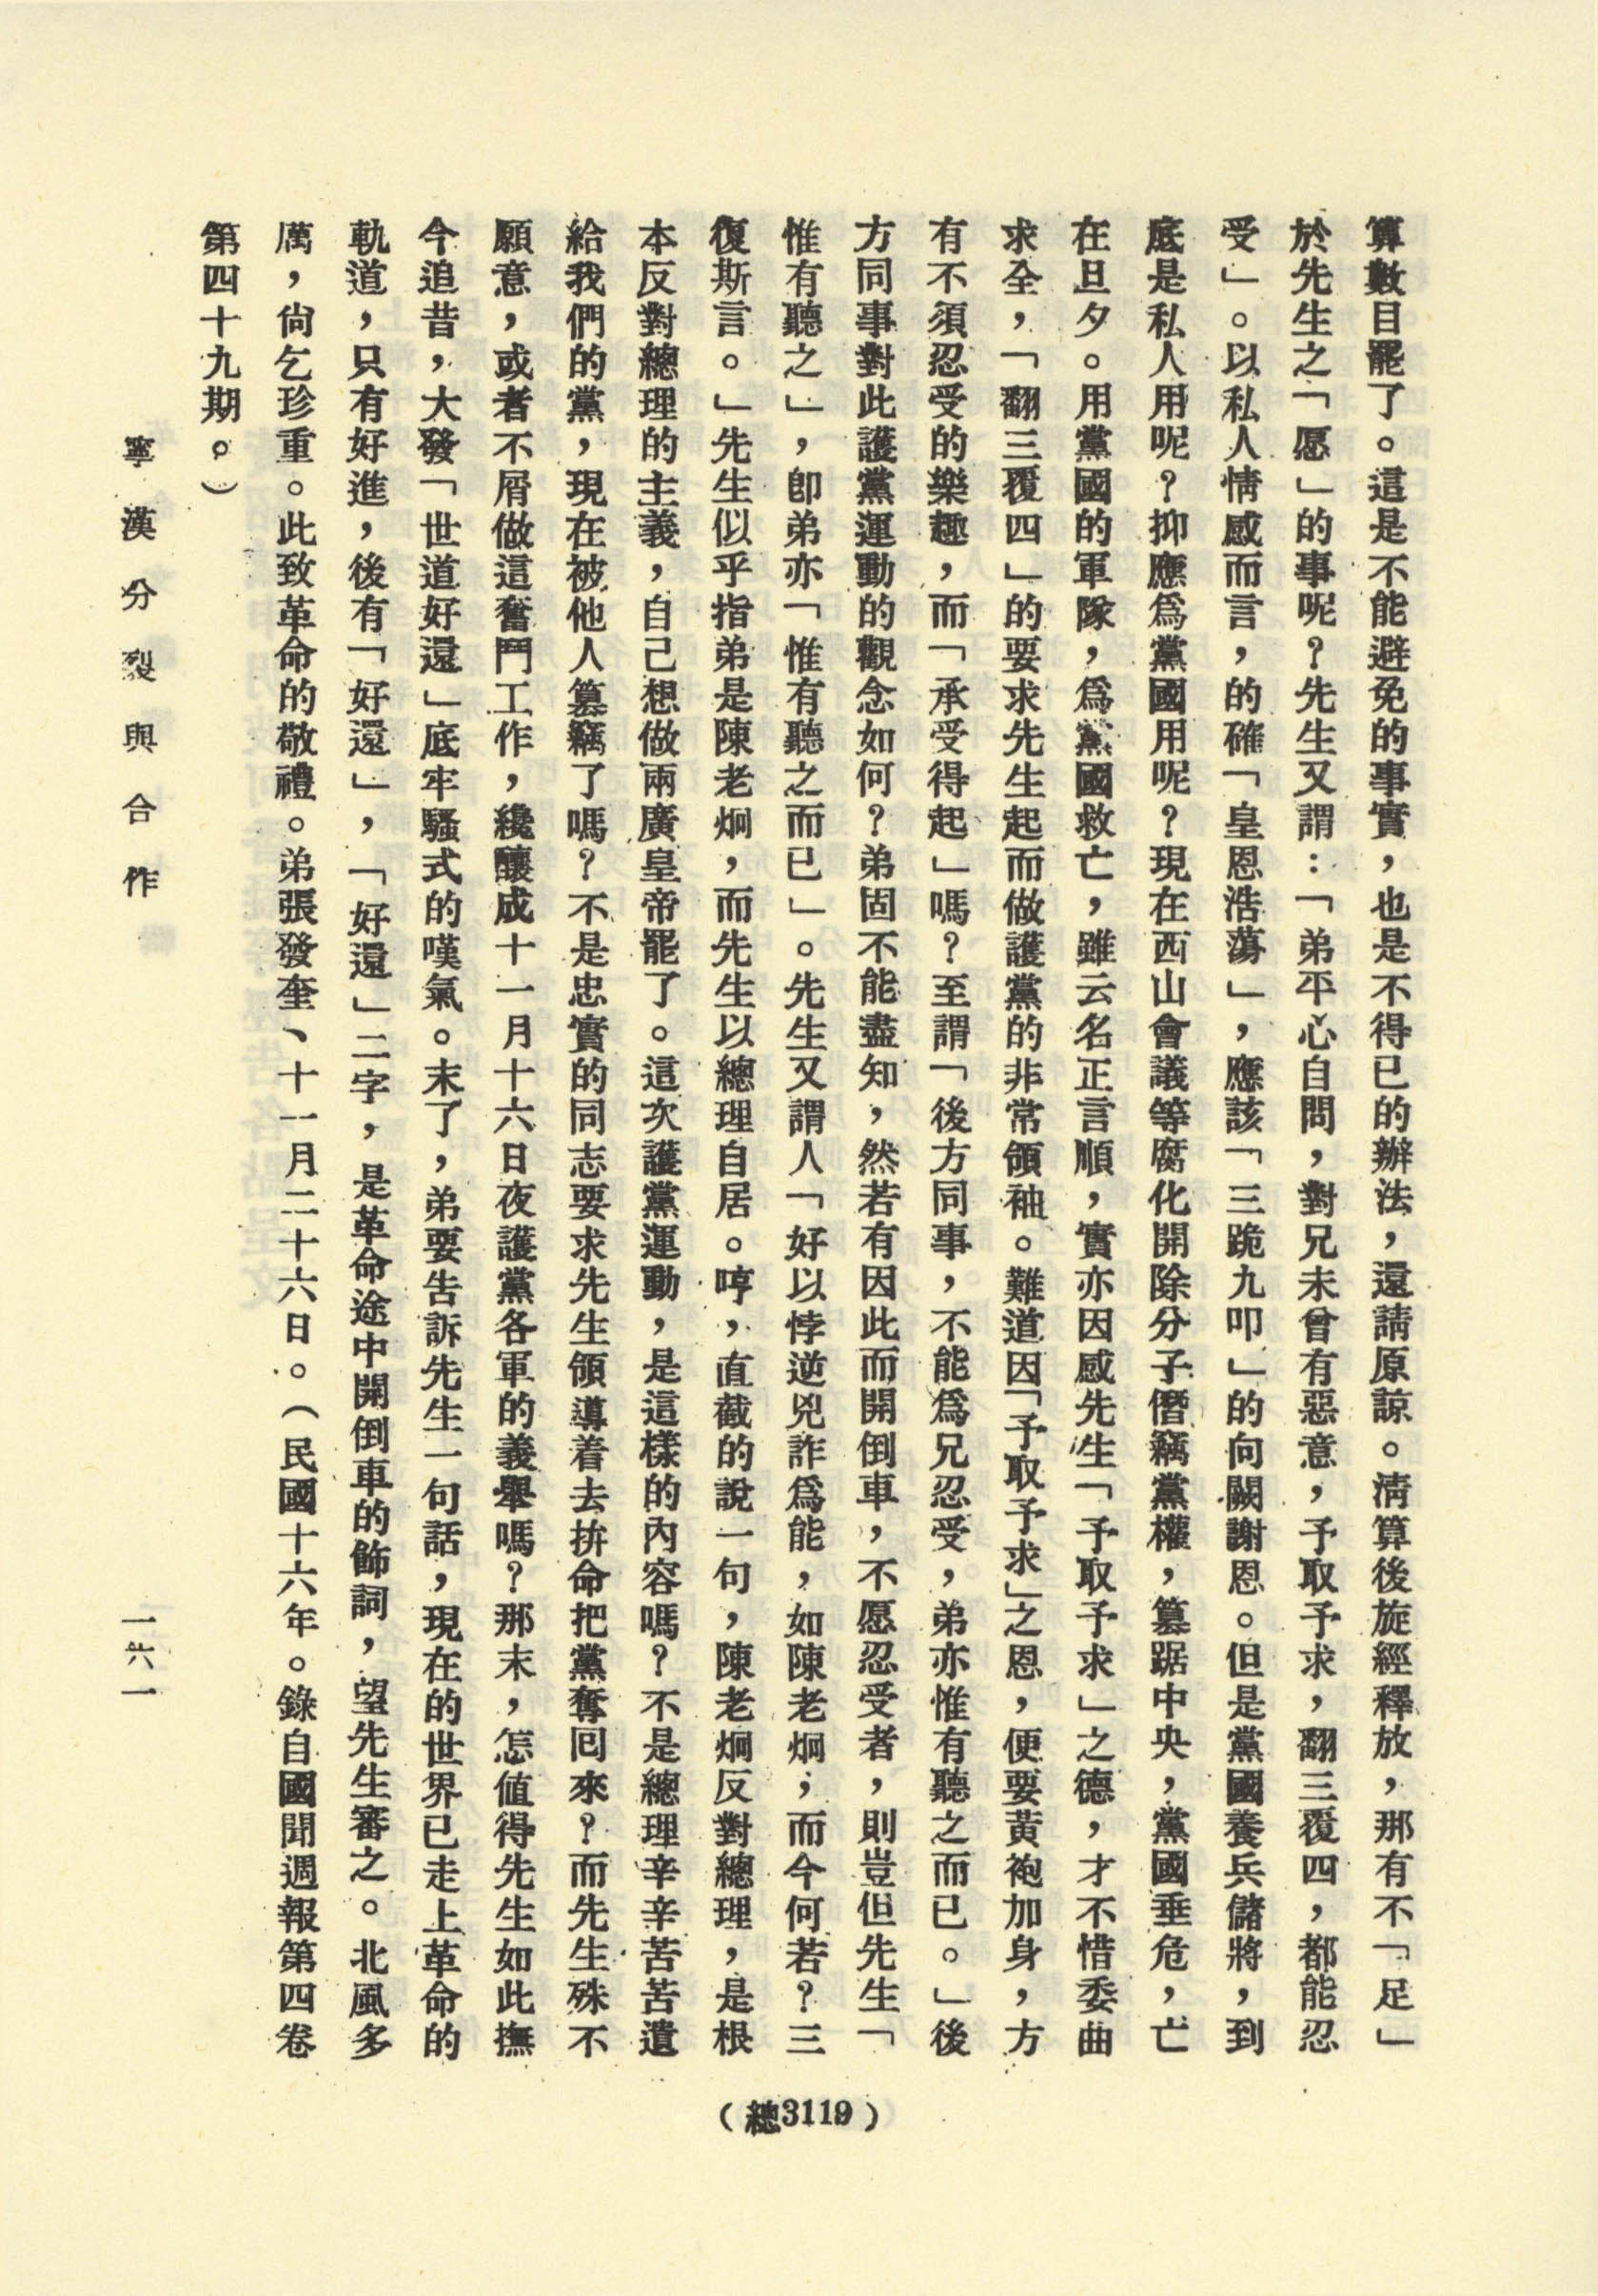 算數目罷了。這是不能避免的事實，也是不得已的辦法，還請原諒。淸算後旋經釋放，那有不「足」
於先生之「愿」的事呢？先生又謂：「弟平心自問，對兄未曾有惡意，予取予求，翻三覆四，都能忍
受」。以私人情感而言，的確「皇恩浩蕩」，應該「三跪九叩」的向闕謝恩。但是黨國養兵儲將，到
底是私人用呢？抑應爲黨國用呢？現在西山會議等腐化開除分子僭竊黨權，篡踞中央，黨國垂危，亡
在旦夕。用黨國的軍隊，爲黨國救亡，雖云名正言順，實亦因感先生「予取予求」之德，才不惜委曲
求全，「翻三覆四」的要求先生起而做護黨的非常領袖。難道因「予取予求」之恩，便要黃袍加身，方
有不須忍受的樂趣，而「承受得起」嗎？至謂「後方同事，不能爲兄忍受，弟亦惟有聽之而已。」後
方同事對此護黨運動的觀念如何？弟固不能盡知，然若有因此而開倒車，不愿忍受者，則豈但先生「
惟有聽之」，卽弟亦「惟有聽之而已」。先生又謂人「好以悖逆兇詐爲能，如陳老炯；而今何若？三
復斯言。」先生似乎指弟是陳老炯，而先生以總理自居。哼，直截的說一句，陳老炯反對總理，是根
本反對總理的主義，自己想做兩廣皇帝罷了。這次護黨運動，是這樣的內容嗎？不是總理辛辛苦苦遺
給我們的黨，現在被他人篡竊了嗎？不是忠實的同志要求先生領導着去拚命把黨奪回來？而先生殊不
願意，或者不屑做這奮鬥工作，纔釀成十一月十六日夜護黨各軍的義舉嗎？那末，怎值得先生如此撫
今追昔，大發「世道好還」底牢騷式的嘆氣。末了，弟要吿訴先生一句話，現在的世界已走上革命的
軌道，只有好進，後有「好還」，「好還」二字，是革命途中開倒車的飾詞，望先生審之。北風多
厲，尙乞珍重。此致革命的敬禮。弟張發奎、十一月二十六日。（民國十六年。錄自國聞週報第四卷
第四十九期。）
寧漢分裂與合作
一六一
（總3119）